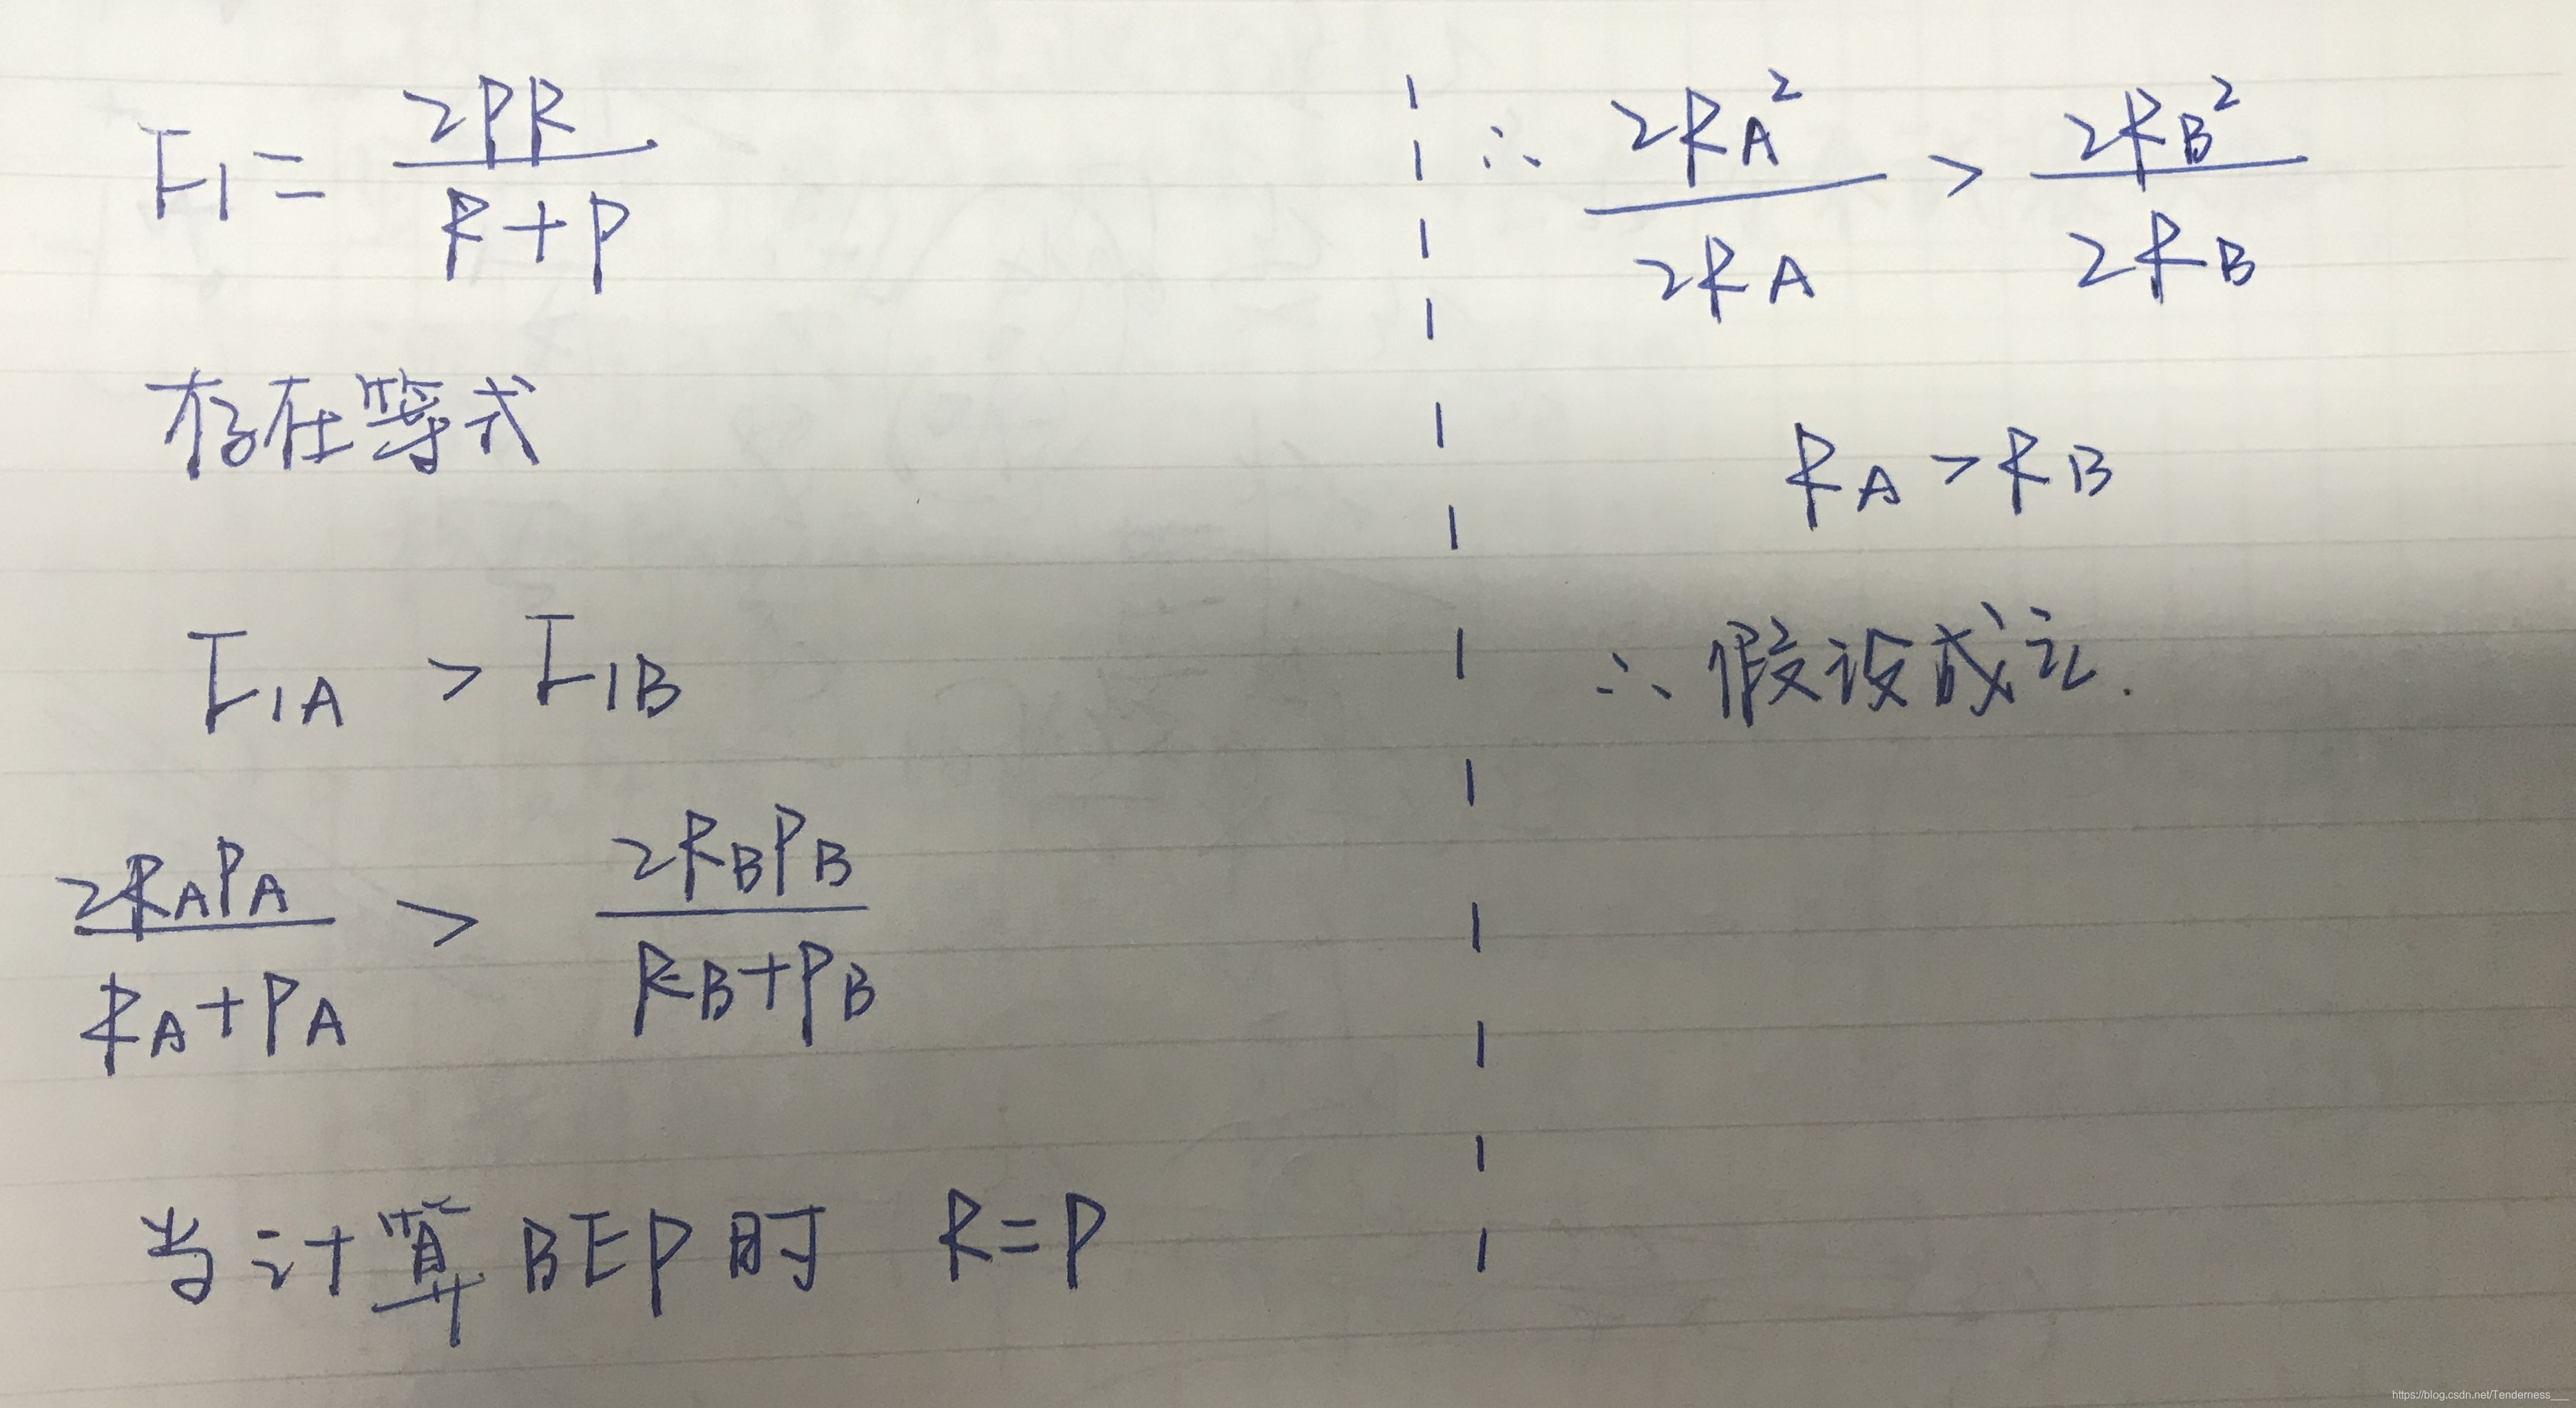 F1 = 2PR / R+P
存在等式
F1A > F1B
2RAPA / RA+PA > 2RBPB / RB+PB
当计算BEP时 R=P
∴ 2RA² / 2RA > 2RB² / 2RB
RA > RB
∴ 假设成立.
https://blog.csdn.net/Tenderness___